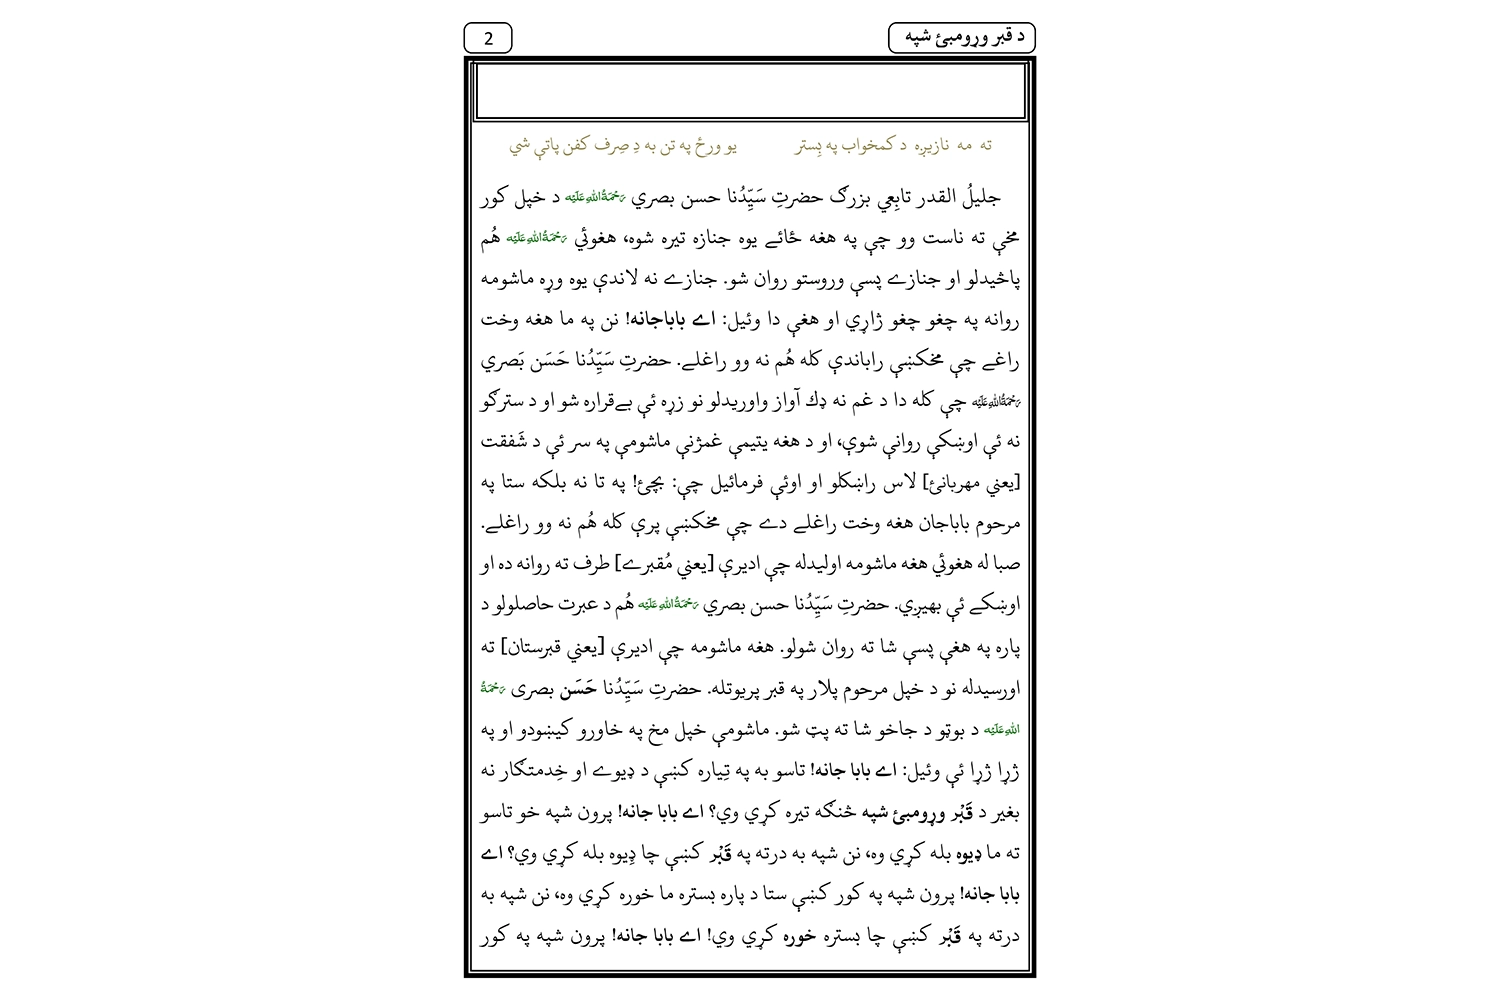 د قبر وړومبئ شپه
2
ته مه نازیږه د کمخواب په بِستر یو ورځ په تن به دِ صِرف کفن پاتې شي
جلیلُ القدر تابِعي بزرګ حضرتِ سَیِّدُنا حسن بصري رَحْمَةُ اللهِ عَلَيْه د خپل کور
مخې ته ناست وو چې په هغه ځائے یوه جنازه تیره شوه، هغوئي رَحْمَةُ اللهِ عَلَيْه هُم
پاڅیدلو او جنازے پسې وروستو روان شو. جنازے نه لاندې یوه وړه ماشومه
روانه په چغو چغو ژاړي او هغې دا وئیل: اے باباجانه! نن په ما هغه وخت
راغے چې مخکښې راباندې کله هُم نه وو راغلے. حضرتِ سَیِّدُنا حَسَن بَصري
رَحْمَةُ اللهِ عَلَيْه چې کله دا د غم نه ډك آواز واوریدلو نو زړه ئې بےقراره شو او د سترګو
نه ئې اوښکې روانې شوې، او د هغه یتیمې غمژنې ماشومې په سر ئې د شَفقت
[یعني مهربانئ] لاس راښکلو او اوئې فرمائیل چې: بچئ! په تا نه بلکه ستا په
مرحوم باباجان هغه وخت راغلے دے چې مخکښې پرې کله هُم نه وو راغلے.
صبا له هغوئي هغه ماشومه اولیدله چې ادیرې [یعني مُقبرے] طرف ته روانه ده او
اوښکے ئې بهیږي. حضرتِ سَیِّدُنا حسن بصري رَحْمَةُ اللهِ عَلَيْه هُم د عبرت حاصلولو د
پاره په هغې پسې شا ته روان شولو. هغه ماشومه چې ادیرې [یعني قبرستان] ته
اورسیدله نو د خپل مرحوم پلار په قبر پریوتله. حضرتِ سَیِّدُنا حَسَن بصری رَحْمَةُ
اللهِ عَلَيْه د بوټو د جاخو شا ته پټ شو. ماشومې خپل مخ په خاورو کیښودو او په
ژړا ژړا ئې وئیل: اے بابا جانه! تاسو به په تِیاره کښې د ډیوے او خِدمتګار نه
بغیر د قَبْر وړومبئ شپه څنګه تیره کړې وي؟ اے بابا جانه! پرون شپه خو تاسو
ته ما ډیوه بله کړې وه، نن شپه به درته په قَبْر کښې چا ډِیوه بله کړې وي؟ اے
بابا جانه! پرون شپه په کور کښې ستا د پاره بستره ما خوره کړې وه، نن شپه به
درته په قَبْر کښې چا بستره خوره کړې وي! اے بابا جانه! پرون شپه په کور